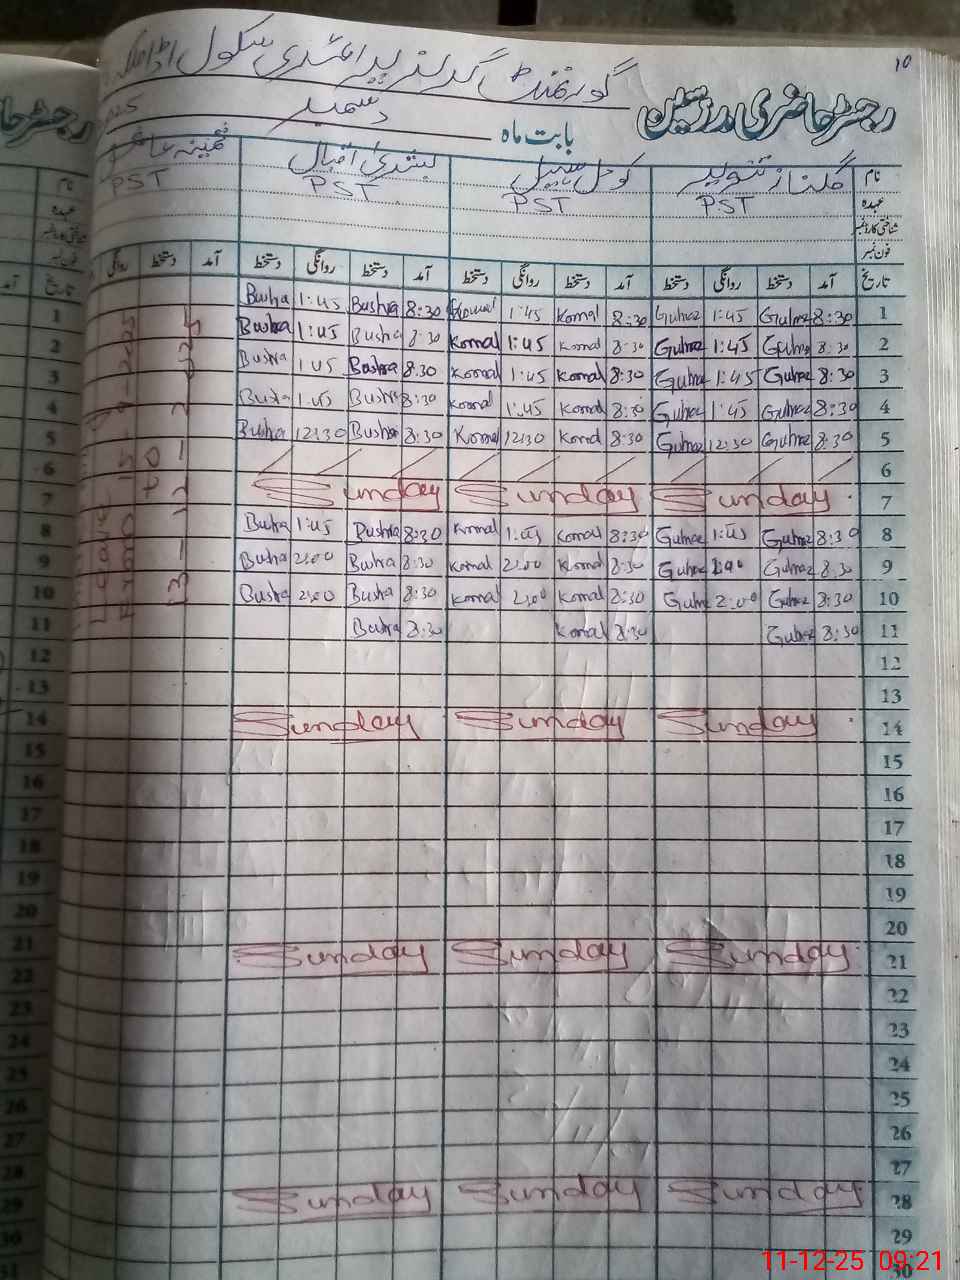 10
گورنمنٹ گرلز پرائمری سکول اڈا
رجسٹر حاضری مدرسین بابت ماہ دسمبر
نام گلناز تنویر کومل سہیل بشریٰ اقبال ثمینہ
عہدہ PST PST PST PST
شناختی کارڈ نمبر
فون نمبر
تاریخ آمد دستخط روانگی دستخط آمد دستخط روانگی دستخط آمد دستخط روانگی دستخط آمد دستخط روانگی
1 8:30 Gulnaz 1:45 Gulnaz 8:30 Komal 1:45 Komal 8:30 Bushra 1:45 Bushra
2 8:30 Gulnaz 1:45 Gulnaz 8:30 Komal 1:45 Komal 8:30 Bushra 1:45 Bushra
3 8:30 Gulnaz 1:45 Gulnaz 8:30 Komal 1:45 Komal 8:30 Bushra 1:45 Bushra
4 8:30 Gulnaz 1:45 Gulnaz 8:30 Komal 1:45 Komal 8:30 Bushra 1:45 Bushra
5 8:30 Gulnaz 12:30 Gulnaz 8:30 Komal 12:30 Komal 8:30 Bushra 12:30 Bushra
6
7 Sunday Sunday Sunday
8 8:30 Gulnaz 1:45 Gulnaz 8:30 Komal 1:45 Komal 8:30 Bushra 1:45 Bushra
9 8:30 Gulnaz 2:00 Gulnaz 8:30 Komal 2:00 Komal 8:30 Bushra 2:00 Bushra
10 8:30 Gulnaz 2:00 Gulnaz 8:30 Komal 2:00 Komal 8:30 Bushra 2:00 Bushra
11 8:30 Gulnaz 8:30 Komal 8:30 Bushra
12
13
14 Sunday Sunday Sunday
15
16
17
18
19
20
21 Sunday Sunday Sunday
22
23
24
25
26
27
28 Sunday Sunday Sunday
29
30
Leave From 15-9-2025
to
13-12-2025
11-12-25 09:21